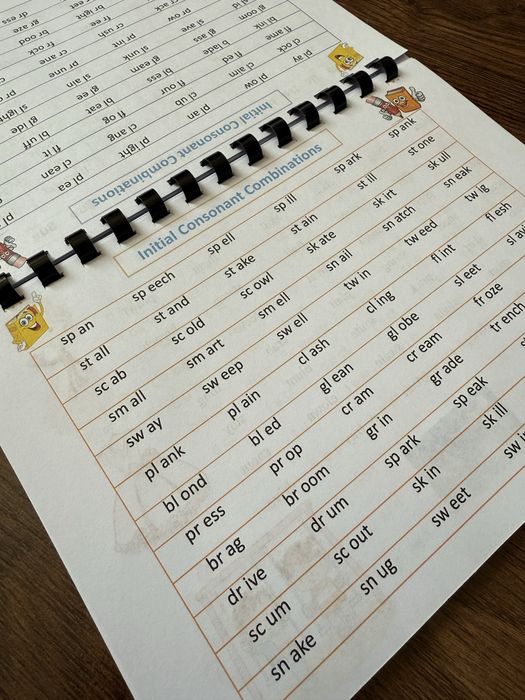 Initial Consonant Combinations
pl an pl ight pl ea
cl ock cl am cl ub cl ang cl ean
bl ink fl ame fl ed fl our fl og fl it
gl oom bl ade bl ess bl eat bl uff
gl ass gl ee gl ide
sl ave sl unk sl ain sl ight
pr ow pr int pr une
cr ush cr ane
fr ock
br ight br ood
dr ess
Initial Consonant Combinations
sp an sp eech sp ell sp ill sp ark sp ank
st all st and st ake st ain st ill st one
sc ab sc old sc owl sk ate sk irt sk ull
sm all sm art sm ell sn all sn atch sn eak
sw ay sw eep sw ell tw in tw eed tw ig
pl ank pl ain cl ash cl ing fl int fl esh
bl ond bl ed gl ean gl obe sl eet
pr ess pr op cr am cr eam fr oze
br ag br oom gr in gr ade tr ench
dr ive dr um sp ark sp eak
sc um sc out sk in sk ill
sn ake sn ug sw eet